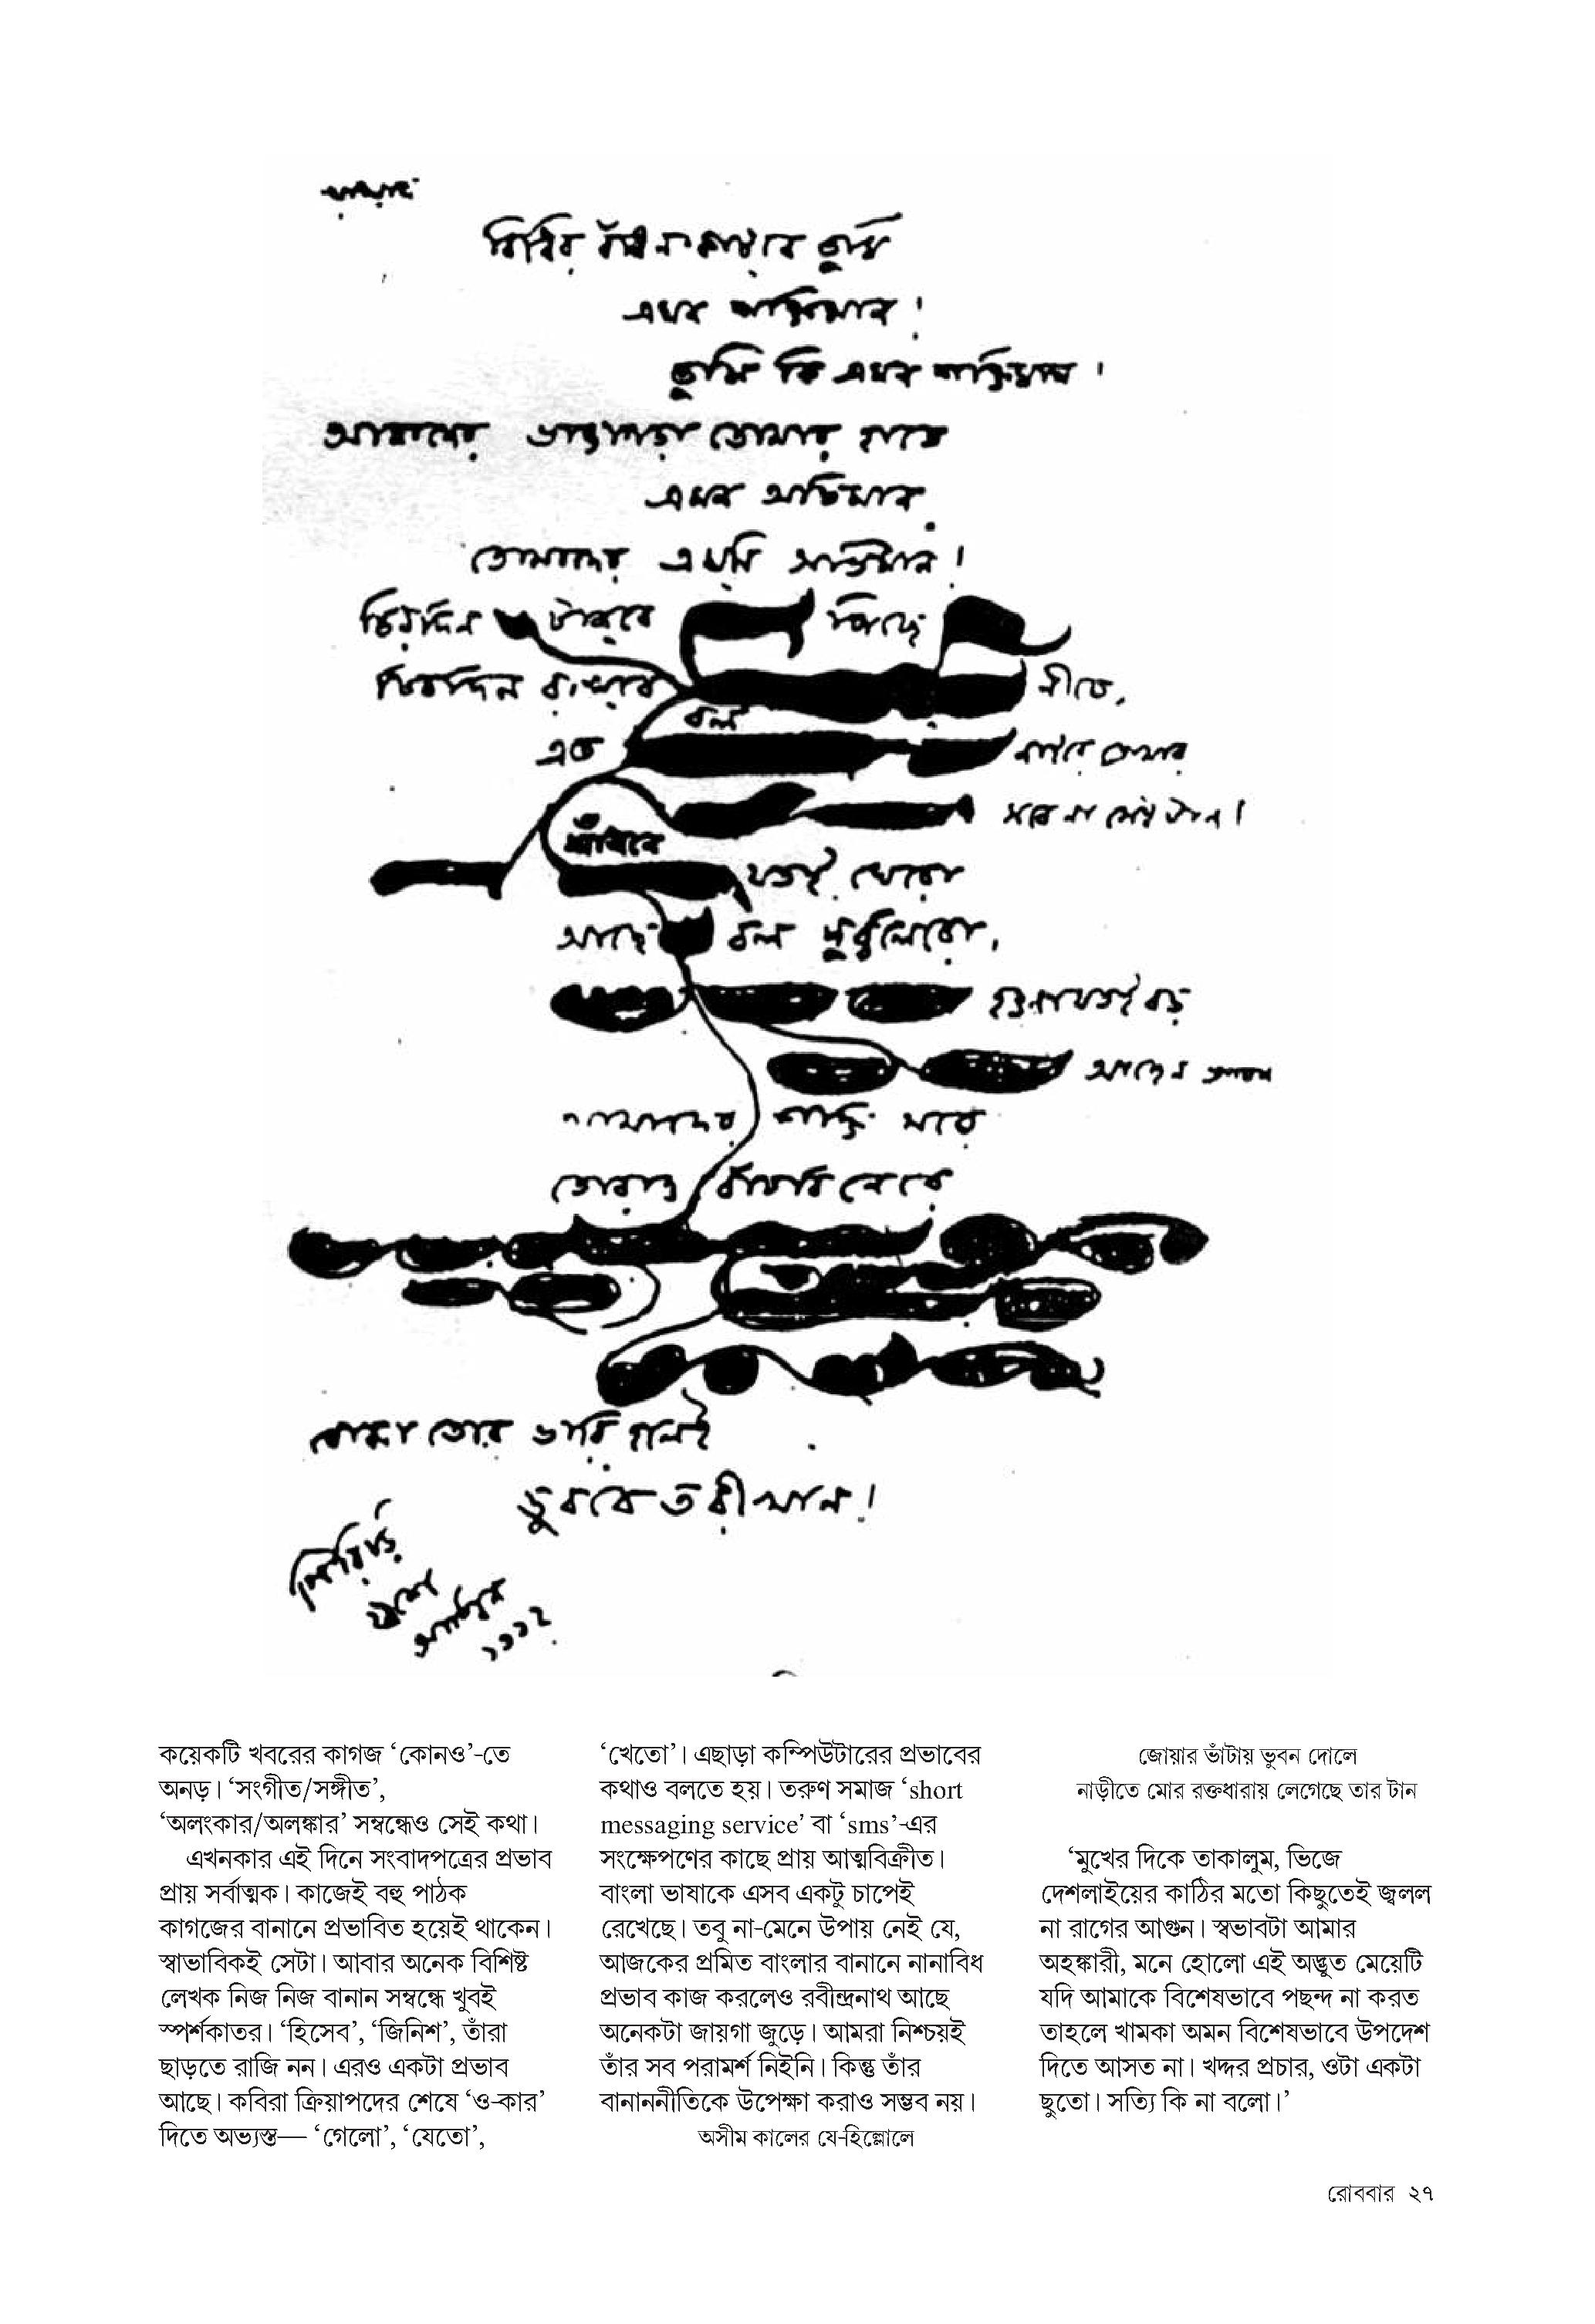 বিধির বাঁধন কাটবে তুমি
এমন শক্তিমান!
তুমি কি এমন শক্তিমান!
আমাদের ভাঙাগড়া তোমার হাতে
এমন অভিমান
তোমাদের এমনি অভিমান!
চিরদিন টানবে পিছে
চিরদিন রাখবে নীচে,
বল
এত নাইরে তোমার
সবে না সেই টান!
শাসনে
যতই ঘেরো
আছে বল দুর্ব্বলেরো,
হওনা যতই বড়
আছেন ভগবান
আমাদের শক্তি মেরে
তোরাও বাঁচবি নেরে
বোঝা তোর ভারি হলেই
ডুববে তরীখান!
কয়েকটি খবরের কাগজ ‘কোনও’-তে
অনড়। ‘সংগীত/সঙ্গীত’,
‘অলংকার/অলঙ্কার’ সম্বন্ধেও সেই কথা।
এখনকার এই দিনে সংবাদপত্রের প্রভাব
প্রায় সর্বাত্মক। কাজেই বহু পাঠক
কাগজের বানানে প্রভাবিত হয়েই থাকেন।
স্বাভাবিকই সেটা। আবার অনেক বিশিষ্ট
লেখক নিজ নিজ বানান সম্বন্ধে খুবই
স্পর্শকাতর। ‘হিসেব’, ‘জিনিশ’, তাঁরা
ছাড়তে রাজি নন। এরও একটা প্রভাব
আছে। কবিরা ক্রিয়াপদের শেষে ‘ও-কার’
দিতে অভ্যস্ত— ‘গেলো’, ‘যেতো’,
‘খেতো’। এছাড়া কম্পিউটারের প্রভাবের
কথাও বলতে হয়। তরুণ সমাজ ‘short
messaging service’ বা ‘sms’-এর
সংক্ষেপণের কাছে প্রায় আত্মবিক্রীত।
বাংলা ভাষাকে এসব একটু চাপেই
রেখেছে। তবু না-মেনে উপায় নেই যে,
আজকের প্রমিত বাংলার বানানে নানাবিধ
প্রভাব কাজ করলেও রবীন্দ্রনাথ আছে
অনেকটা জায়গা জুড়ে। আমরা নিশ্চয়ই
তাঁর সব পরামর্শ নিইনি। কিন্তু তাঁর
বানাননীতিকে উপেক্ষা করাও সম্ভব নয়।
অসীম কালের যে-হিল্লোলে
জোয়ার ভাঁটায় ভুবন দোলে
নাড়ীতে মোর রক্তধারায় লেগেছে তার টান
‘মুখের দিকে তাকালুম, ভিজে
দেশলাইয়ের কাঠির মতো কিছুতেই জ্বলল
না রাগের আগুন। স্বভাবটা আমার
অহঙ্কারী, মনে হোলো এই অদ্ভুত মেয়েটি
যদি আমাকে বিশেষভাবে পছন্দ না করত
তাহলে খামকা অমন বিশেষভাবে উপদেশ
দিতে আসত না। খদ্দর প্রচার, ওটা একটা
ছুতো। সত্যি কি না বলো।’
রোববার ২৭